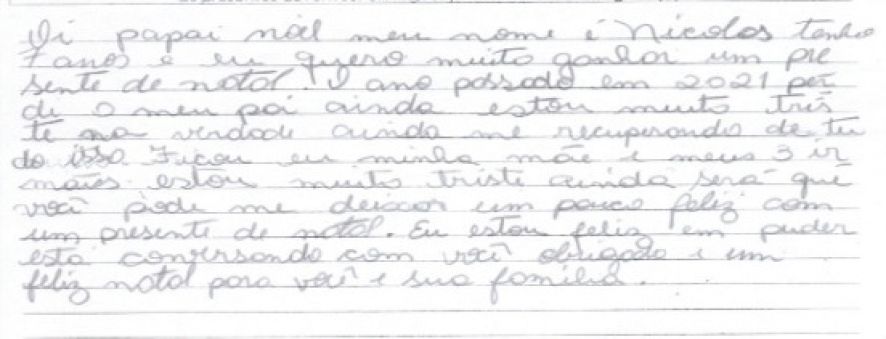 Oi papai nóel meu nome é Nicolas tenho
7 anos e eu quero muito ganhar um pre
sente de natal. O ano passado em 2021 per
di o meu pai ainda estou muito tris
te na verdade ainda me recuperando de tu
do isso. Ficou eu minha mãe e meus 3 ir
mães estou muito triste ainda será que
você pode me deixar um pouco feliz com
um presente de natal. Eu estou feliz em puder
esta conversando com você obrigado e um
feliz natal para você e sua família.